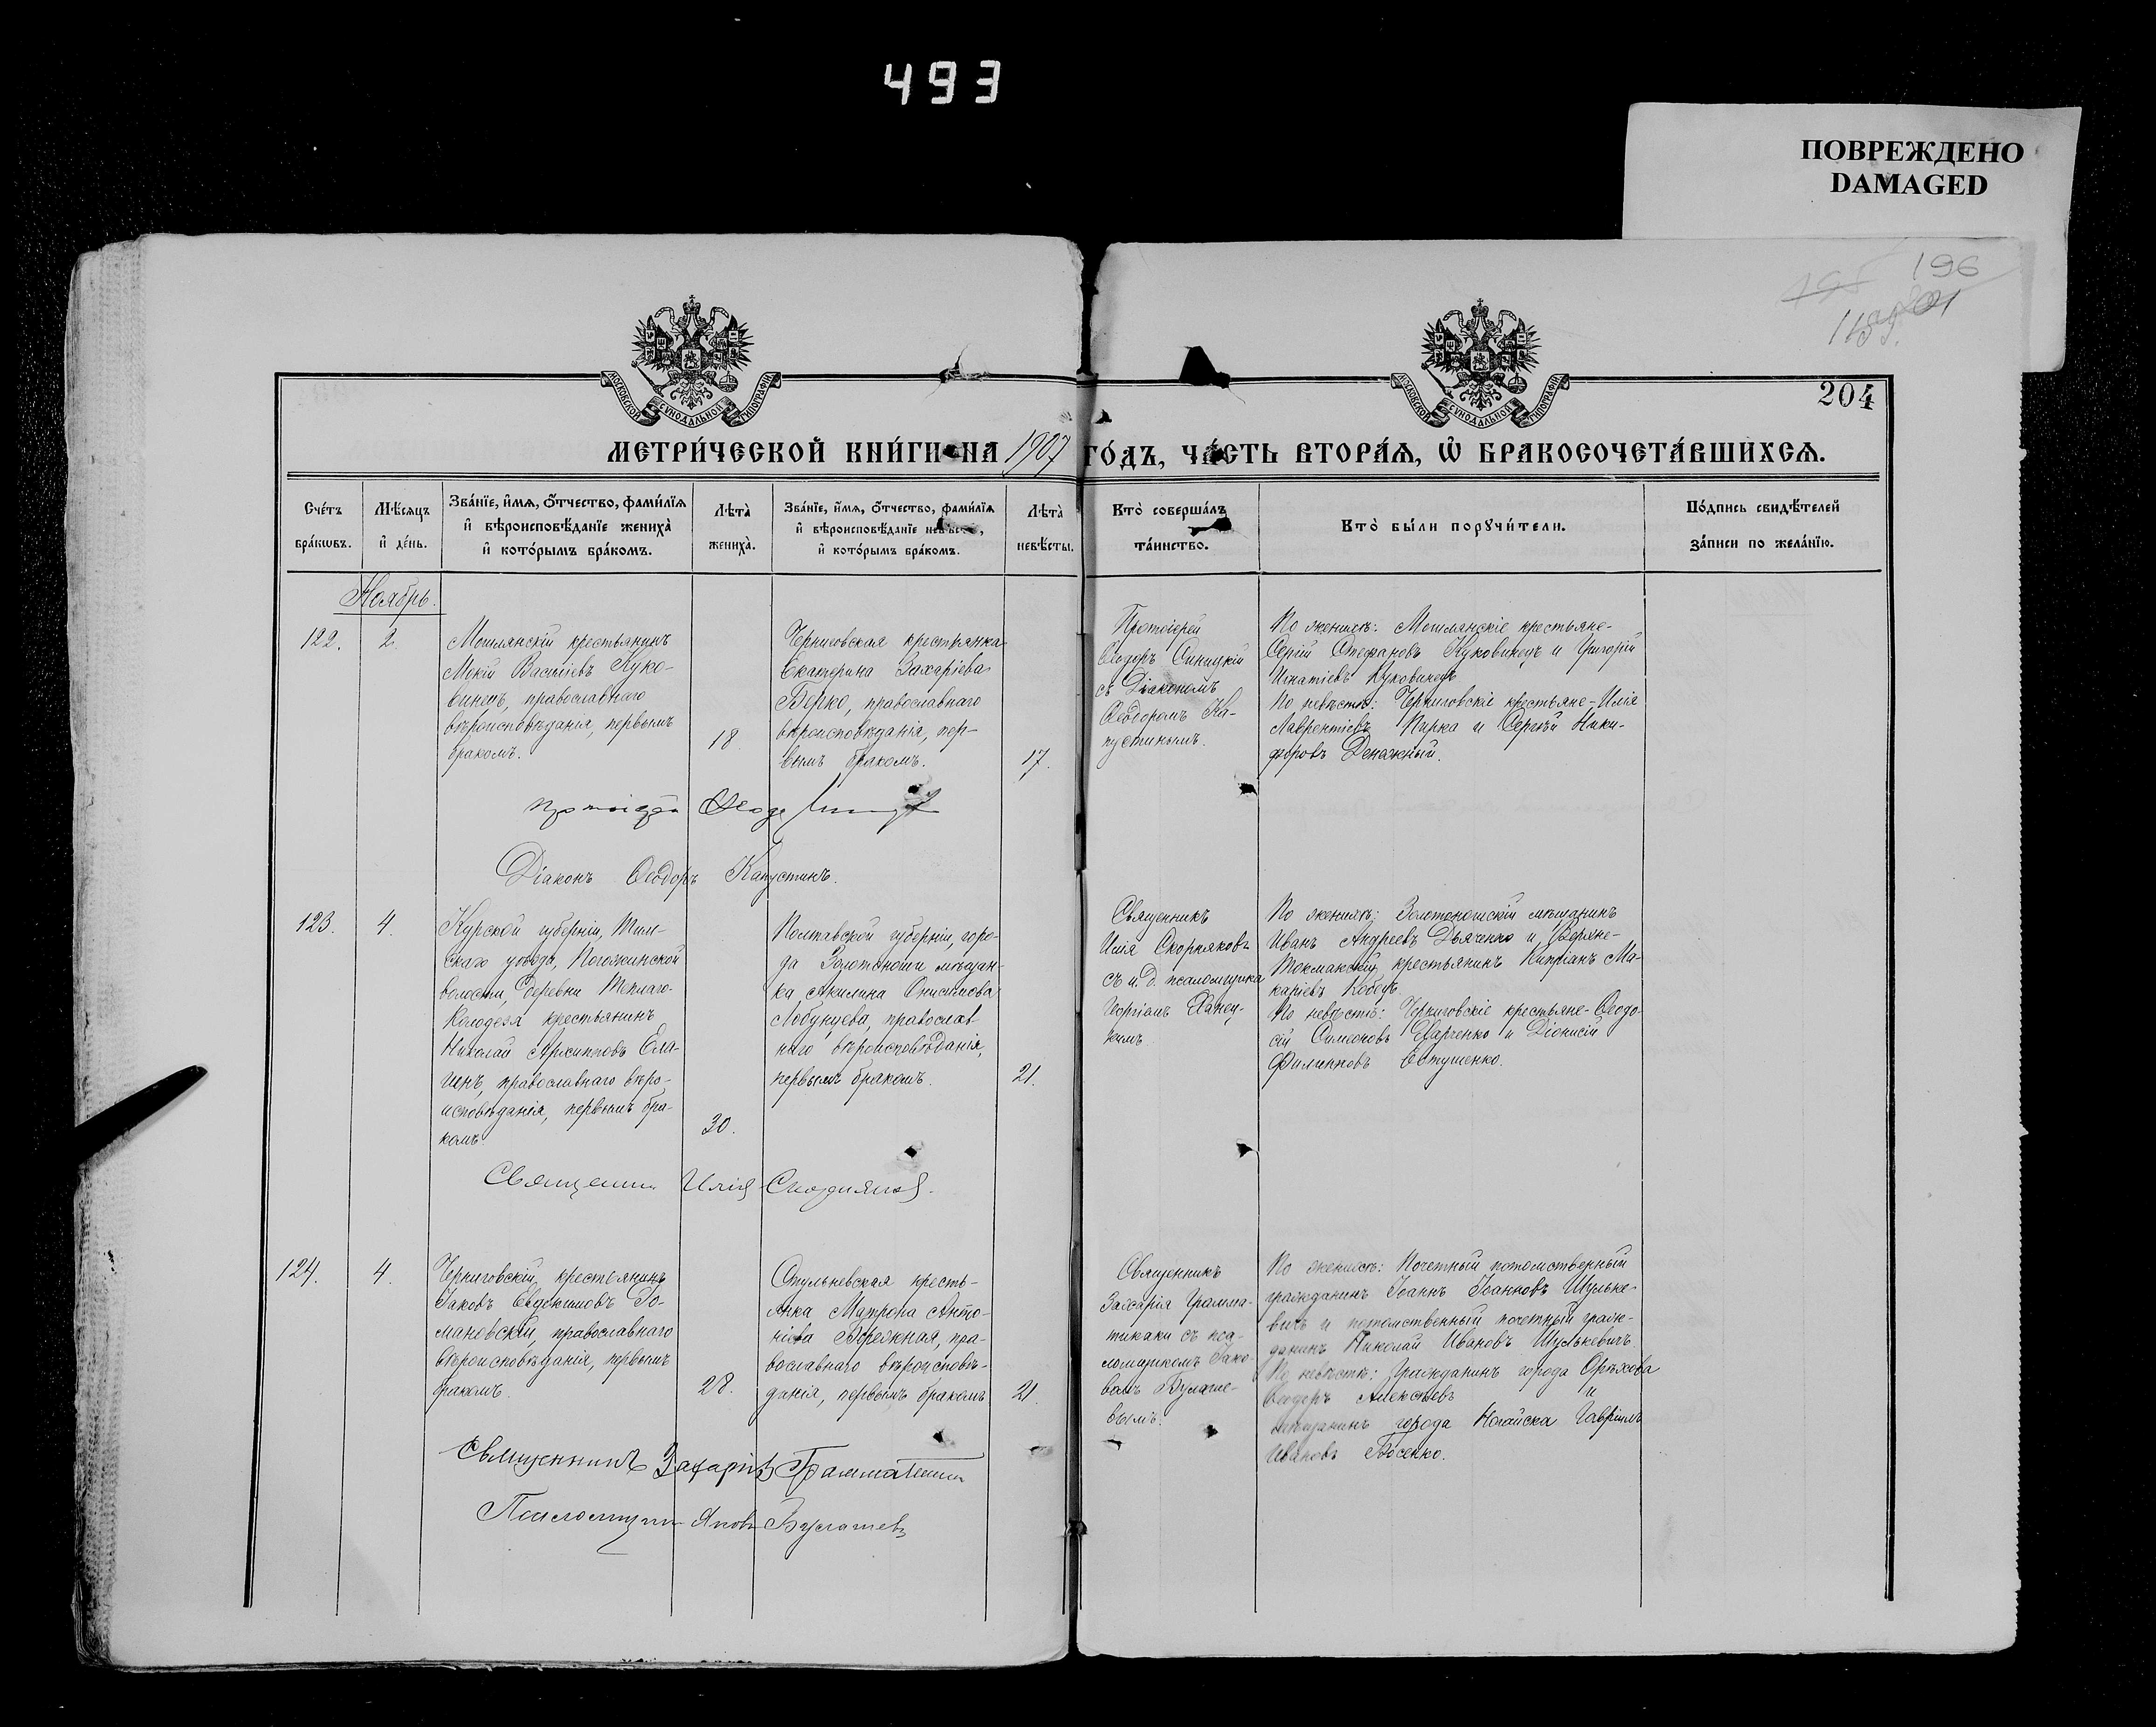 493
ПОВРЕЖДЕНО
DAMAGED
196
204
МОСКОВСКОЙ СУНОДАЛЬНОЙ ТИПОГРАФІИ
МОСКОВСКОЙ СУНОДАЛЬНОЙ ТИПОГРАФІИ
МЕТРИ́ЧЕСКОЙ КНИ́ГИ НА 1907 ГО́ДЪ, ЧА́СТЬ ВТОРА́Я, Ѽ БРАКОСОЧЕТА́ВШИХСЯ.
Сче́тъ бра́кωвъ.
Мѣ́сяцъ и҆ де́нь.
Зва́нїе, и҆́мя, ѻ҆́тчество, фами́лїя и҆ вѣроисповѣ́данїе жениха̀ и҆ кото́рымъ бра́комъ.
Лѣта̀ жениха̀.
Зва́нїе, и҆́мя, ѻ҆́тчество, фами́лїя и҆ вѣроисповѣ́данїе невѣсты, и҆ кото́рымъ бра́комъ.
Лѣта̀ невѣ́сты.
Кто̀ соверша́лъ та́инство.
Кто̀ бы́ли порꙋчи́тели.
По́дпись свидѣ́телей за́писи по жела́нїю.
Ноябрь.
122.
2.
Мошлянскій крестьянинъ
Мокій Васильевъ Куко-
винецъ, православнаго
вѣроисповѣданія, первымъ
бракомъ.
18.
Черниговская крестьянка
Екатерина Захаріева
Бейко, православнаго
вѣроисповѣданія, пер-
вымъ бракомъ.
17.
Протоіерей
Ѳеодоръ Синицкій
съ Діакономъ
Ѳеодоромъ Ка-
пустинымъ.
По женихѣ: Мошлянскіе крестьяне-
Сергій Стефановъ Куковинецъ и Григорій
Игнатіевъ Куковинецъ
По невѣстѣ: Черниговскіе крестьяне-Илія
Лаврентіевъ Пирка и Сергѣй Ники-
форовъ Денажный.
Діаконъ Ѳеодоръ Капустинъ.
123.
4.
Курской губерніи, Тим-
скаго уѣзда, Погожинской
волости, деревни Теплаго-
Колодезя крестьянинъ
Николай Архиповъ Ела-
гинъ, православнаго вѣро-
исповѣданія, первымъ бра-
комъ.
30.
Полтавской губерніи, горо-
да Золотоноши мѣщан-
ка Акилина Онисимова
Лобунцева, православ
наго вѣроисповѣданія,
первымъ бракомъ.
21.
Священникъ
Илія Скорняковъ
съ и. д. псаломщика
Георгіемъ Ханец-
кимъ
По женихѣ: Золотоношскій мѣщанинъ
Иванъ Андреевъ Дьяченко и Верхне-
Токмакскій крестьянинъ Кипріанъ Ма-
каріевъ Кобецъ
По невѣстѣ: Черниговскіе крестьяне-Ѳеодо-
сій Симеоновъ Харченко и Діонисій
Филипповъ Евтушенко.
Священникъ Илія Скорняковъ.
124.
4.
Черниговскій крестьянинъ
Іаковъ Евдокимовъ Ро-
мановскій, православнаго
вѣроисповѣданія, первымъ
бракомъ.
28.
Стульневская кресть-
янка Матрона Анто-
ніева Бережная, пра-
вославнаго вѣроисповѣ-
данія, первымъ бракомъ
21.
Священникъ
Захарія Грамма-
тикаки съ пса-
ломщикомъ Іако-
вомъ Булаше-
вымъ.
По женихѣ: Почетный потомственный
гражданинъ Іоаннъ Іоанновъ Шульке-
вичъ и потомственный почетный граж-
данинъ Николай Ивановъ Шулькевичъ
По невѣстѣ: Гражданинъ города Орѣхова
Ѳеодоръ Алексѣевъ и
мѣщанинъ города Ногайска Гавріилъ
Ивановъ Босенко.
Священникъ Захарія Грамматикаки
Псаломщикъ Яковъ Булашевъ